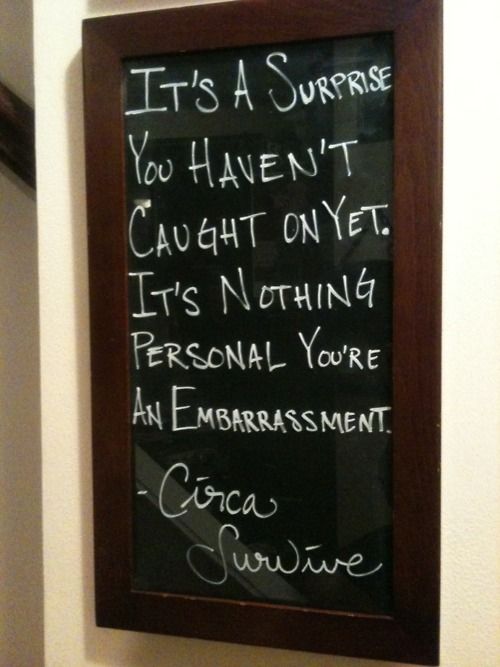 It's A Surprise
You Haven't
Caught on Yet.
It's Nothing
Personal You're
An Embarrassment.
- Circa
Survive